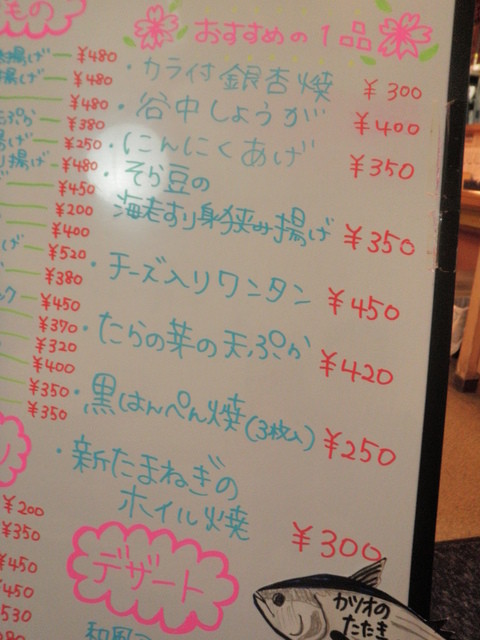 もの
おすすめの1品
揚げ ¥480
揚げ ¥480
¥480
天ぷら ¥380
揚げ ¥250
り揚げ ¥480
¥450
¥200
¥400
げ ¥520
¥380
ック ¥450
¥370
¥320
¥400
¥350
¥350
¥200
¥350
¥450
¥450
¥530
・カラ付銀杏焼 ¥300
・谷中しょうが ¥400
・にんにくあげ ¥350
・そら豆の
海老すり身狭み揚げ ¥350
・チーズ入りワンタン ¥450
・たらの芽の天ぷら ¥420
・黒はんぺん焼(3枚入) ¥250
・新たまねぎの
ホイル焼 ¥300
デザート
和風
カツオの
たたき